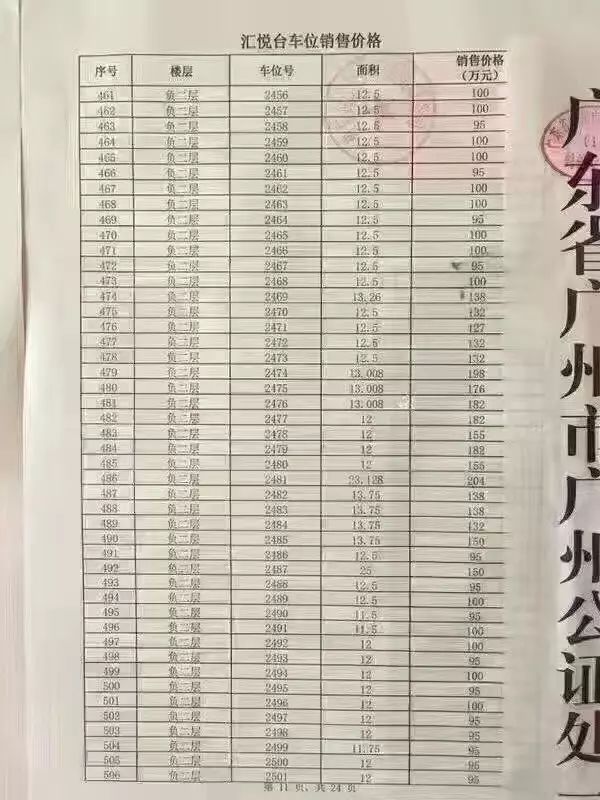 汇悦台车位销售价格
序号 楼层 车位号 面积 销售价格(万元)
461 负二层 2456 12.5 100
462 负二层 2457 12.5 100
463 负二层 2458 12.5 95
464 负二层 2459 12.5 100
465 负二层 2460 12.5 100
466 负二层 2461 12.5 95
467 负二层 2462 12.5 100
468 负二层 2463 12.5 100
469 负二层 2464 12.5 95
470 负二层 2465 12.5 100
471 负二层 2466 12.5 100
472 负二层 2467 12.5 95
473 负二层 2468 12.5 100
474 负二层 2469 13.26 138
475 负二层 2470 12.5 132
476 负二层 2471 12.5 127
477 负二层 2472 12.5 132
478 负二层 2473 12.5 132
479 负二层 2474 13.008 198
480 负二层 2475 13.008 176
481 负二层 2476 13.008 182
482 负二层 2477 12 182
483 负二层 2478 12 155
484 负二层 2479 12 182
485 负二层 2480 12 155
486 负二层 2481 23.128 204
487 负二层 2482 13.75 138
488 负二层 2483 13.75 138
489 负二层 2484 13.75 132
490 负二层 2485 13.75 150
491 负二层 2486 12.5 95
492 负二层 2487 25 150
493 负二层 2488 12.5 95
494 负二层 2489 12.5 100
495 负二层 2490 11.5 95
496 负二层 2491 11.5 100
497 负二层 2492 12 100
498 负二层 2493 12 95
499 负二层 2494 12 100
500 负二层 2495 12 95
501 负二层 2496 12 100
502 负二层 2497 12 95
503 负二层 2498 12 95
504 负二层 2499 11.75 95
505 负二层 2500 12 95
506 负二层 2501 12 95
第 11 页，共 24 页
广东省广州市广州公证处